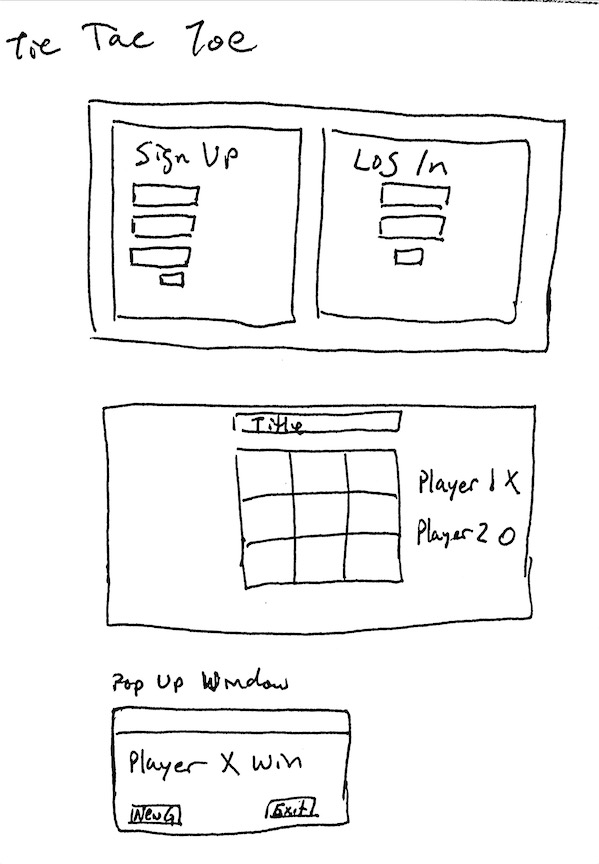 Tic Tac Toe
Sign Up
Log In
Title
Player 1 X
Player 2 O
Pop Up Window
Player X Win
New G
Exit